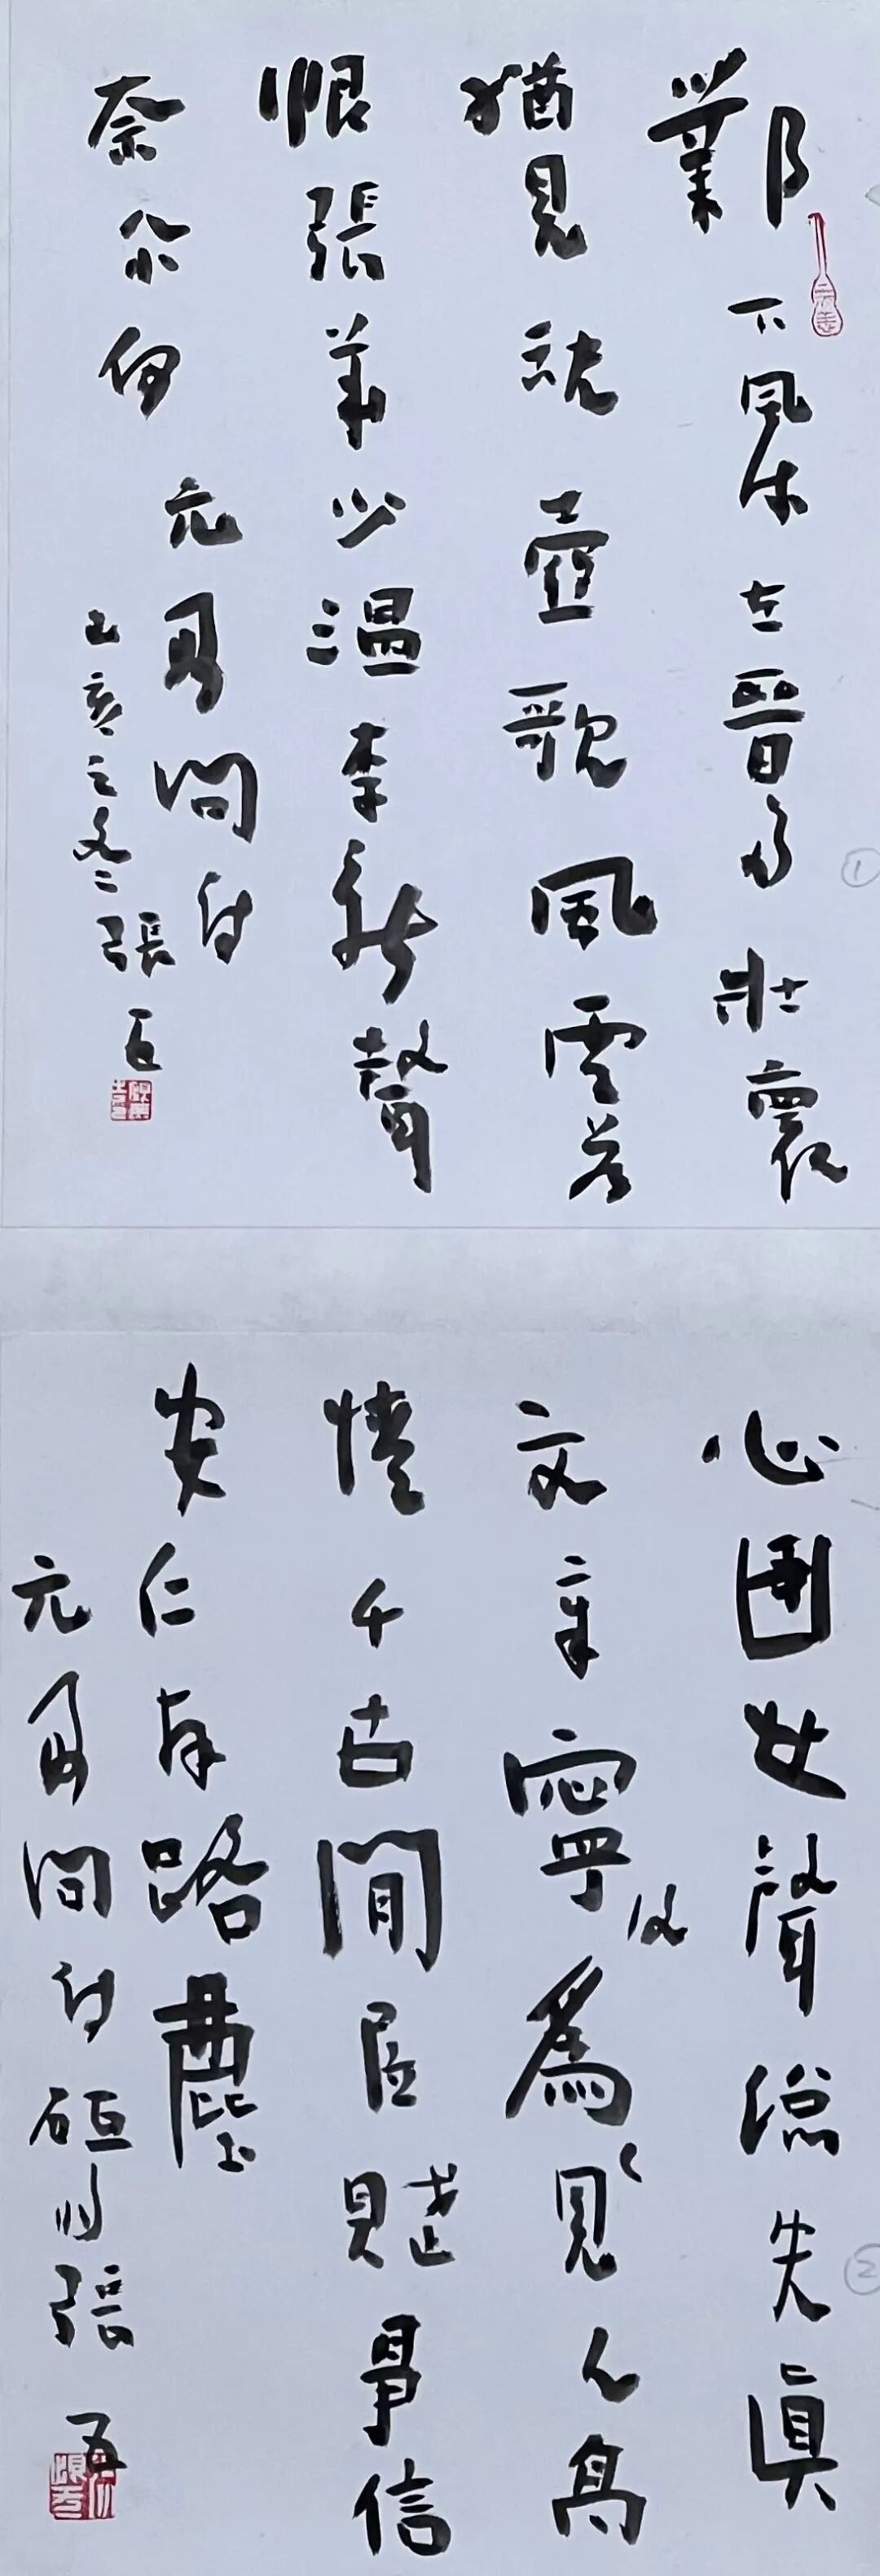 鄴下風流在晉多壯懷
猶見缺壺歌風雲若
恨張華少溫李新聲
奈爾何 元好問詩
己亥之冬 張五
①
心画心聲總失真
文章寧復為見人高
情千古閒居賦爭信
安仁拜路塵
元好問詩 張五
②